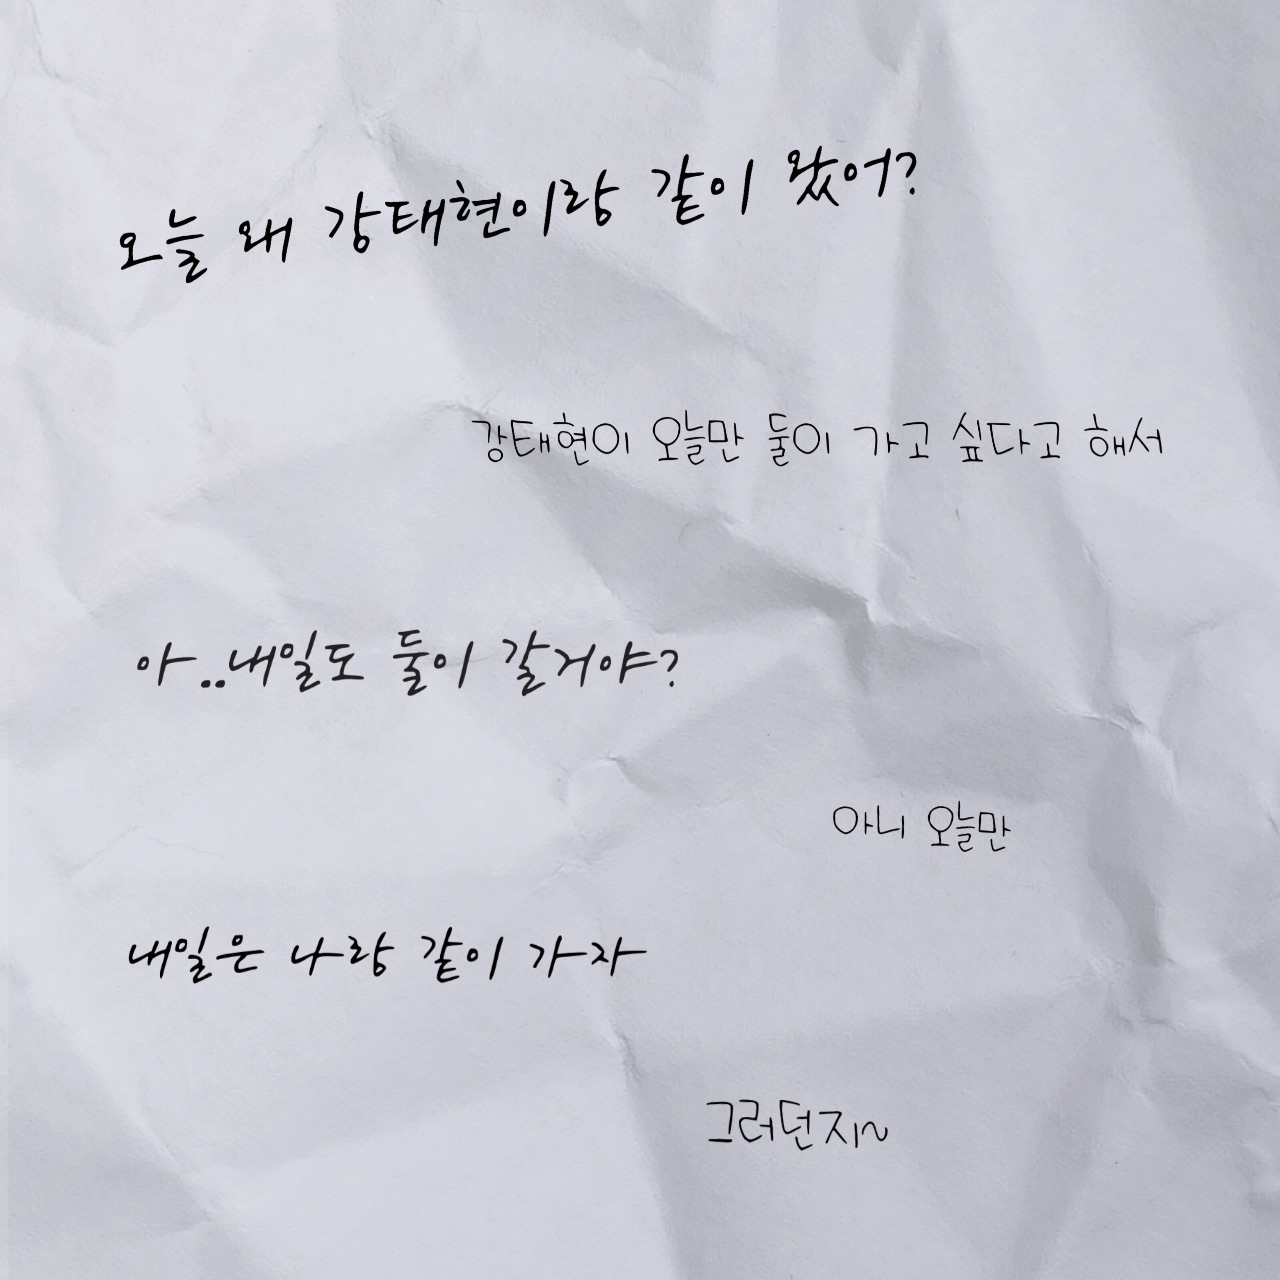 오늘 왜 강태현이랑 같이 왔어?
강태현이 오늘만 둘이 가고 싶다고 해서
아..내일도 둘이 갈거야?
아니 오늘만
내일은 나랑 같이 가자
그러던지~